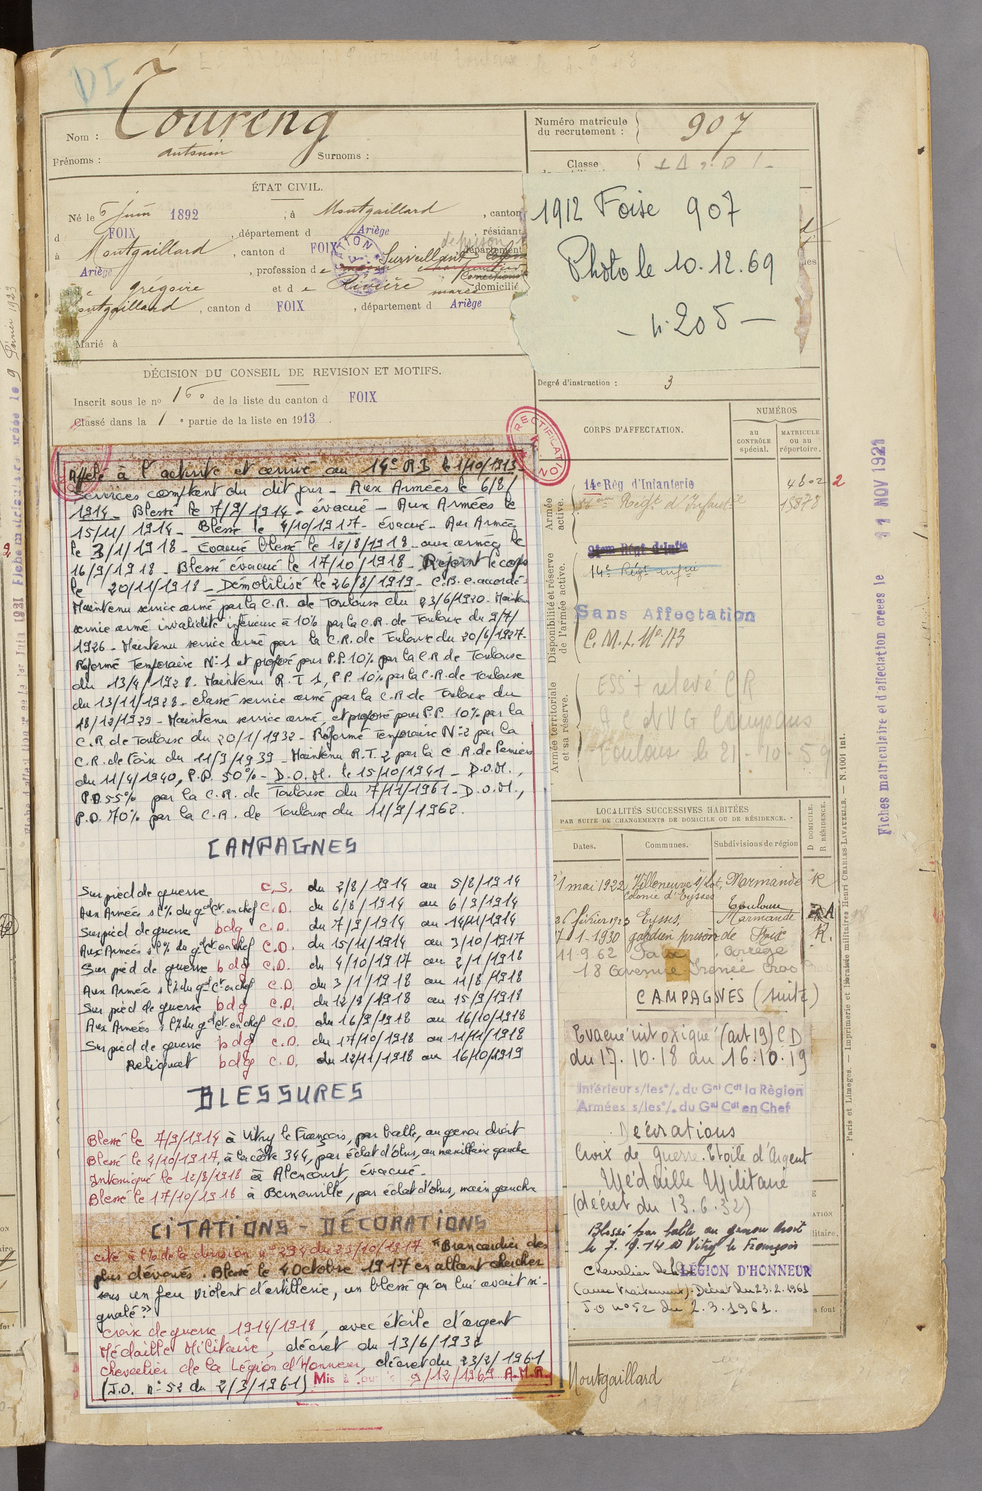 DE
Nom : Toureng
Prénoms : Antonin Surnoms :
Numéro matricule du recrutement : 907
Classe
ÉTAT CIVIL.
Né le 6 Juin 1892, à Montgaillard, canton
d FOIX, département d Ariège, résidant
à Montgaillard, canton d FOIX, département
Ariège, profession de Surveillant
grégoire et de Rivière domicilié
Montgaillard, canton d FOIX, département d Ariège
Marié à
1912 Foise 907
Photo le 10.12.69
- N. 205 -
DÉCISION DU CONSEIL DE REVISION ET MOTIFS.
Inscrit sous le n° 16 de la liste du canton d FOIX
Classé dans la 1e partie de la liste en 1913
Degré d'instruction : 3
RECTIFICATION
Appelé à l'activité et arrivé au 14e R.I. le 1/10/1913
Services comptent du dit jour - Aux Armées le 6/8/
1914 - Blessé le 7/9/1914 - évacué - Aux Armées le
15/11/1914 - Blessé le 4/10/1917 - évacué - Aux Armées
le 3/1/1918 - Evacué blessé le 12/8/1918 - aux armées le
16/9/1918 - Blessé évacué le 17/10/1918 - Rejoint le corps
le 20/11/1918 - Démobilisé le 26/8/1919 - C.B.C. accordé -
Maintenu service armé par la C.R. de Toulouse du 23/6/1920 - Maintenu
service armé invalidité inférieure à 10% par la C.R. de Toulouse du 9/7/
1926 - Maintenu service armé par la C.R. de Toulouse du 20/6/1927.
Réformé Temporaire N°1 et proposé pour P.P. 10% par la C.R. de Toulouse
du 13/4/1928. Maintenu R.T.1, P.P. 10% par la C.R. de Toulouse
du 13/11/1928 - classé service armé par la C.R. de Toulouse du
18/12/1929 - Maintenu service armé, et proposé pour P.P. 10% par la
C.R. de Toulouse du 20/1/1932 - Réformé Temporaire N°2 par la
C.R. de Foix du 11/9/1939 - Maintenu R.T.2 par la C.R. de Pamiers
du 11/4/1940, P.P. 50% - D.O.M. le 15/10/1941 - D.O.M.,
P.D. 55% par la C.R. de Toulouse du 7/11/1961 - D.O.M.,
P.D. 70% par la C.R. de Toulouse du 11/9/1962.
CAMPAGNES
Sur pied de guerre C.S. du 2/8/1914 au 5/8/1914
Aux Armées s/l% du gal Ct en chef C.D. du 6/8/1914 au 6/9/1914
Sur pied de guerre bdg C.D. du 7/9/1914 au 14/11/1914
Aux Armées s/l% du gal Ct en chef C.D. du 15/11/1914 au 3/10/1917
Sur pied de guerre bdg C.D. du 4/10/1917 au 2/1/1918
Aux Armées s/l% du gal Ct en chef C.D. du 3/1/1918 au 11/8/1918
Sur pied de guerre bdg C.D. du 12/8/1918 au 15/9/1918
Aux Armées s/l% du gal Ct en chef C.D. du 16/9/1918 au 16/10/1918
Sur pied de guerre bdg C.D. du 17/10/1918 au 11/11/1918
Reliquat bdg C.D. du 12/11/1918 au 16/10/1919
BLESSURES
Blessé le 7/9/1914 à Vitry le François, par balle, au genou droit
Blessé le 4/10/1917, à la côte 344, par éclat d'obus, au maxillaire gauche
Intoxiqué le 12/8/1918 à Alencourt, évacué -
Blessé le 17/10/1918 à Bernouville, par éclat d'obus, main gauche
CITATIONS - DÉCORATIONS
Cité à l'% de la division n° 294 du 23/10/1917. "Brancardier des
plus dévoués. Blessé le 4 Octobre 1917 en allant chercher
sous un feu violent d'artillerie, un blessé qu'on lui avait si-
gnalé"
Croix de guerre 1914/1918, avec étoile d'argent
Médaille Militaire, décret du 13/6/1932
Chevalier de la Légion d'Honneur, décret du 23/2/1961
(J.O. n° 52 du 2/3/1961) Mis à jour le 9/12/1969 A.M.R.
CORPS D'AFFECTATION.
NUMÉROS
AU CONTRÔLE SPÉCIAL.
MATRICULE OU AU RÉPERTOIRE.
Armée active.
14e Rég d'Infanterie 4802 2
15878
Disponibilité et réserve de l'armée active.
14e Régt
Sans Affectation
C.M.I. N° 173
Armée territoriale et sa réserve.
ESS + relevé CR
ACNVG Compans
Toulouse le 21-10-59
LOCALITÉS SUCCESSIVES HABITÉES
PAR SUITE DE CHANGEMENTS DE DOMICILE OU DE RÉSIDENCE.
Dates. Communes. Subdivisions de région D DOMICILE. R RÉSIDENCE.
1 mai 1922 Villeneuve s/Lot, Marmande R
Colonie d'Eysses
Toulouse
février 1923 Eysses, Marmande
7-1-1930 gardien prison de Foix R.
11.9.62
18 avenue Irénée Cros
CAMPAGNES (suite)
Evacué intoxiqué (art 19) CD
du 17.10.18 au 16.10.19
Intérieur s/les % du Gal Cdt la Région
Armées s/les % du Gal Cdt en Chef
Décorations
Croix de Guerre. Etoile d'Argent
Médaille Militaire
(décret du 13.6.32)
Blessé par balle au genou droit
le 7.9.14 à Vitry le François
Chevalier de la LÉGION D'HONNEUR
(avec traitement). Décret du 23.2.1961
J.O n° 52 du 2.3.1961.
Montgaillard
Fiches matriculaire et d'affectation créées le 11 NOV 1921
Paris et Limoges. — Imprimerie et librairie militaires Henri CHARLES-LAVAUZELLE. — N. 1001 int.